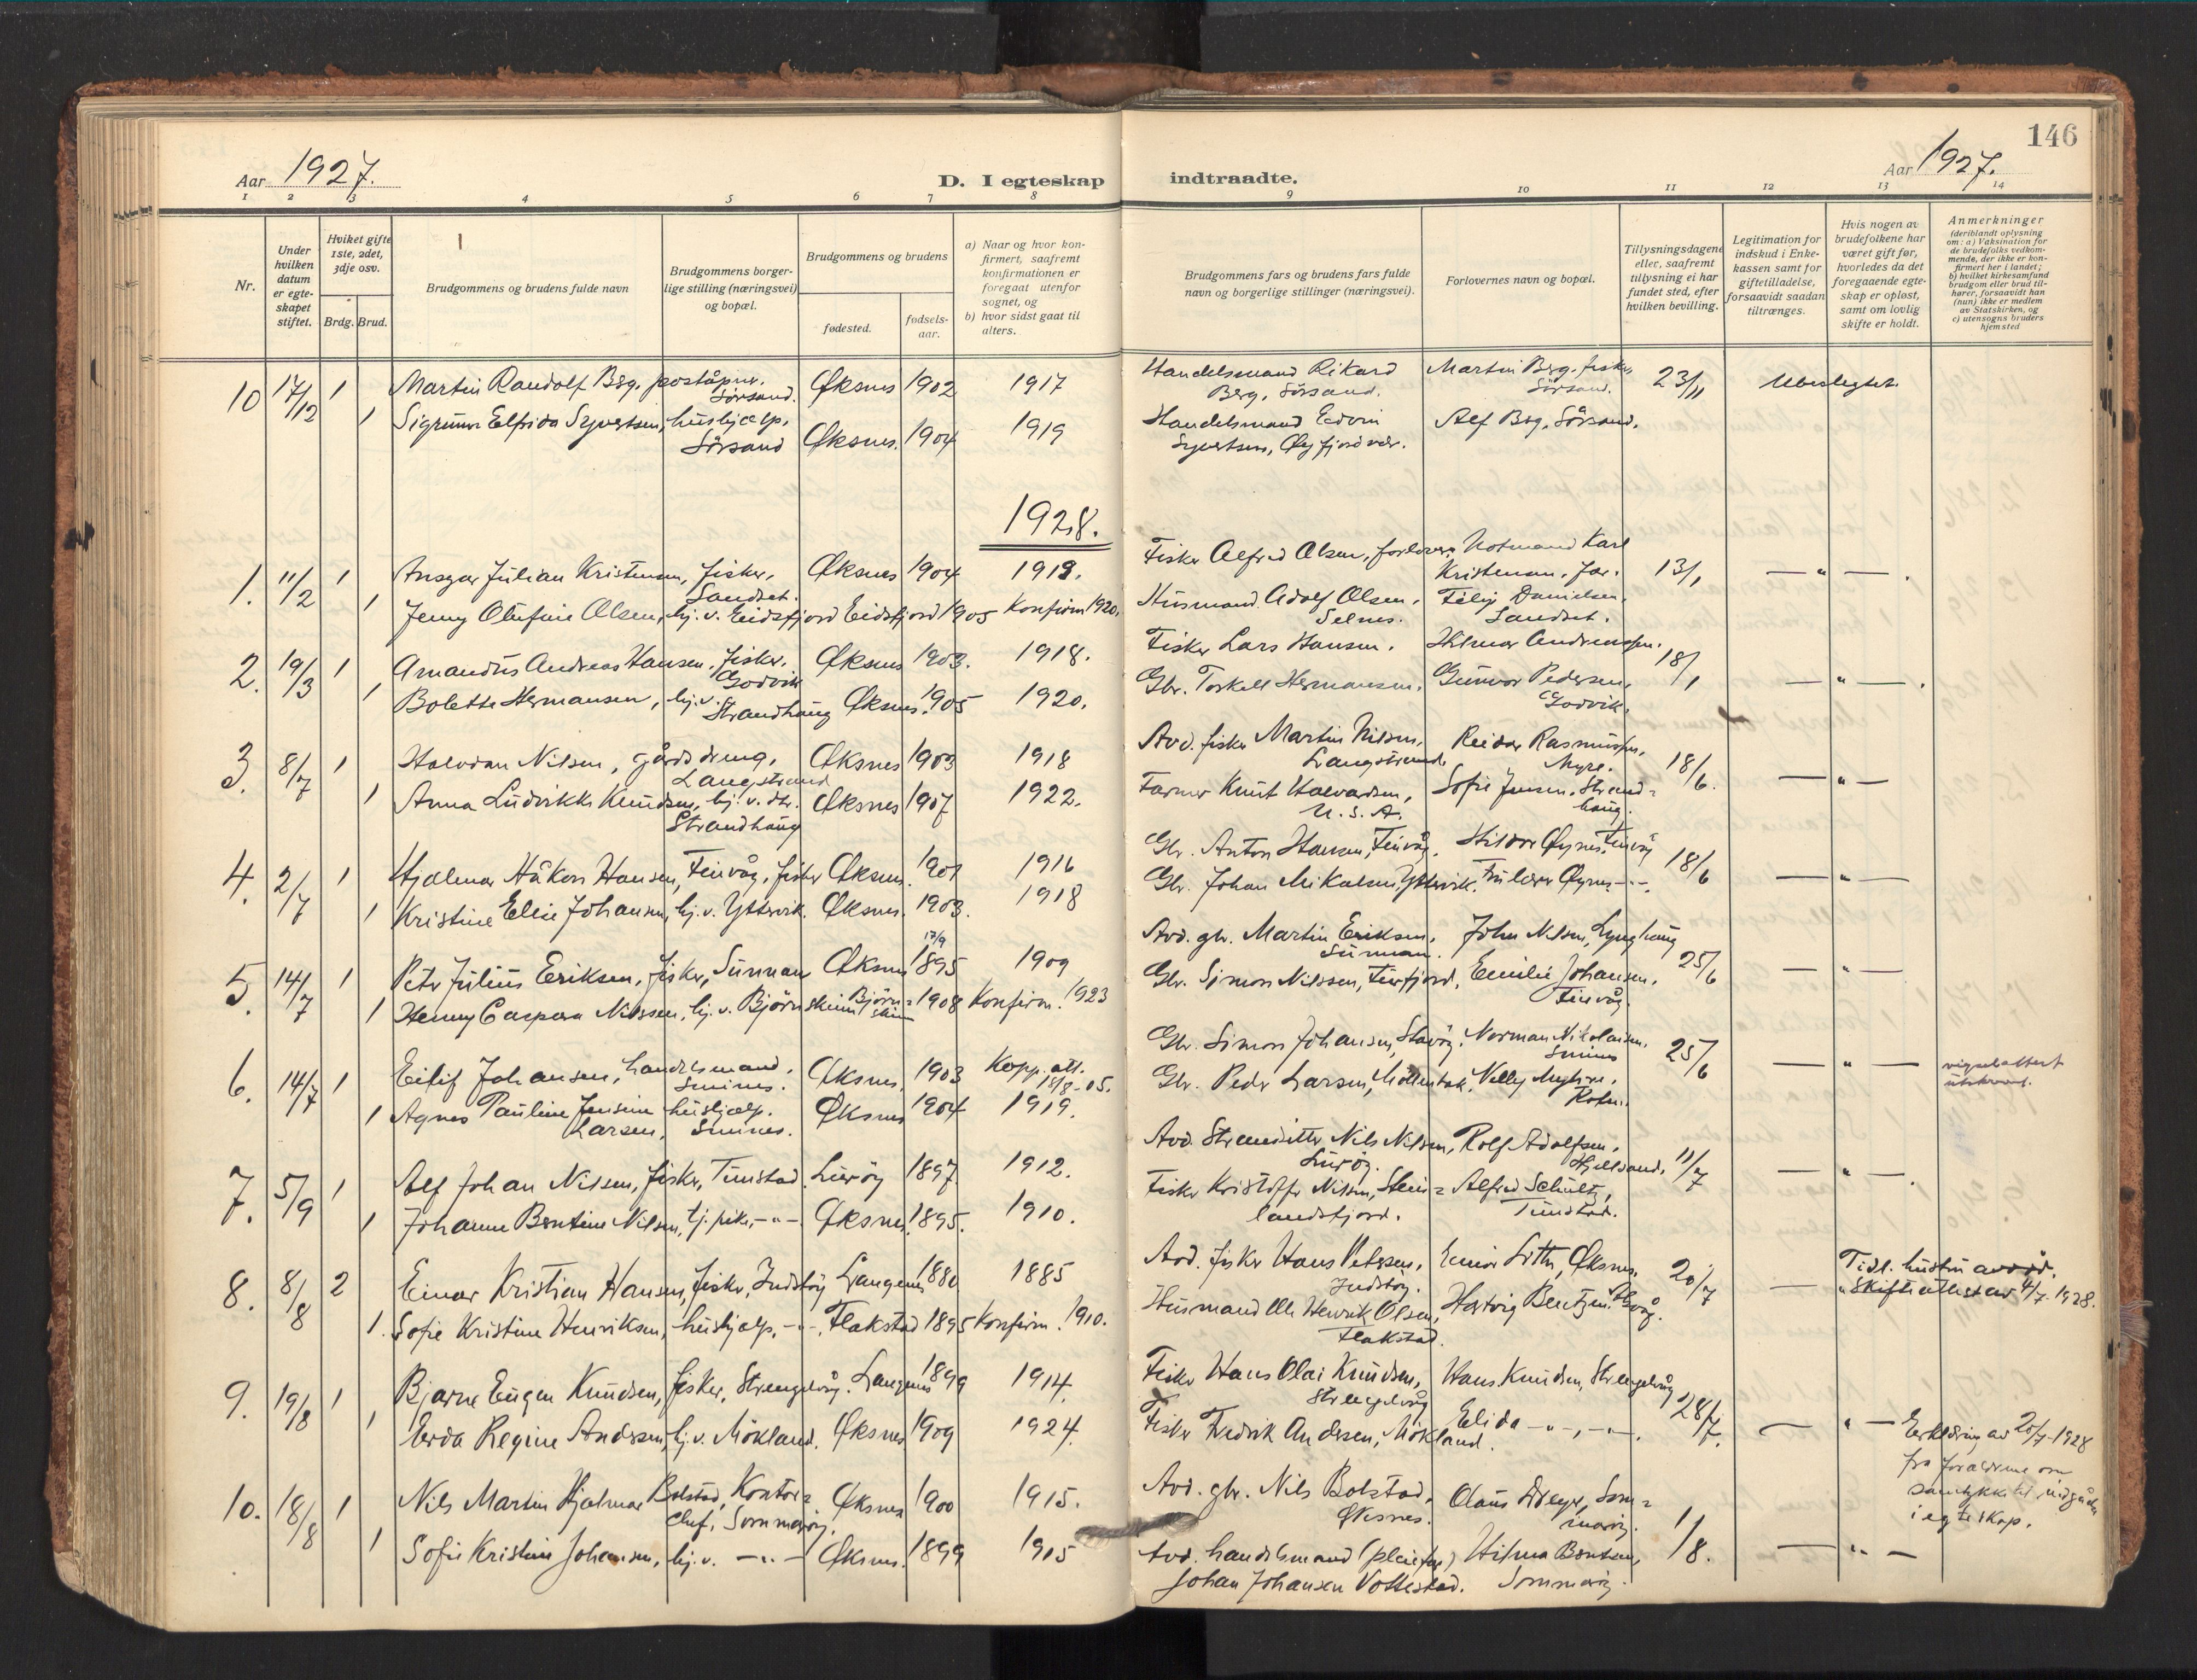 146
Aar 1927.
D. I egteskap indtraadte.
Aar 1927.
1 2 3 4 5 6 7 8 9 10 11 12 13 14
Nr.
Under hvilken datum er egteskapet stiftet.
Hviket gifte 1ste, 2det, 3dje osv.
Brdg. Brud.
Brudgommens og brudens fulde navn
Brudgommens borgerlige stilling (næringsvei) og bopæl.
Brudgommens og brudens
fødested.
fødselsaar.
a) Naar og hvor konfirmert, saafremt konfirmationen er foregaat utenfor sognet, og
b) hvor sidst gaat til alters.
Brudgommens fars og brudens fars fulde navn og borgerlige stillinger (næringsvei).
Forlovernes navn og bopæl.
Tillysningsdagene eller, saafremt tillysning ei har fundet sted, efter hvilken bevilling.
Legitimation for indskud i Enkekassen samt for giftetilladelse, forsaavidt saadan tiltrænges.
Hvis nogen av brudefolkene har været gift før, hvorledes da det foregaaende egteskap er opløst, samt om lovlig skifte er holdt.
Anmerkninger
(deriblandt oplysning om: a) Vaksination for de brudefolks vedkommende, der ikke er konfirmert her i landet;
b) hvilket kirkesamfund brudgom eller brud tilhører, forsaavidt han (hun) ikke er medlem av Statskirken, og
c) utensogns bruders hjemsted
10 17/12 1 Martin Randolf Berg, poståpnr. Sörsand. Øksnes 1902 1917 Handelsmand Rikard Berg, Sörsand. Martin Berg, fisker Sörsand. 23/11 Ubeslegtet.
1 Sigrunn Elfrida Syvertsen, hushjælp, Sörsand Øksnes. 1904 1919 Handelsmand Edvin Syvertsen, Alf Berg, Sörsand.
1928.
1. 11/2 1 Ansgar Julian Kristensen, fisker, Sandset. Øksnes 1904 1919. Fisker Alfred Olsen, forlovers Notmand Karl Kristensen, far. 13/1 — " — .
1 Jenny Olufine Olsen, hj. v. Eidsfjord Eidsfjord 1905 Konfirm 1920. Husmand Adolf Olsen, Selnes. Danielsen, Sandset.
2. 19/3 1 Amandus Andreas Hansen, fisker, Godvik Øksnes 1903. 1918. Fisker Lars Hansen. Hilmar Andreassen. 18/1 — " — .
1 Bolette Hermansen, hj. v. Strandhaug Øksnes. 1905 1920. Gbr. Torkell Hermansen. Gunvor Pedersen, Godvik.
3. 8/7 1 Halvdan Nilsen, gårdsdreng, Langstrand Øksnes 1903 1918 Avd. fisker Martin Nilsen, Langstrand Reidar Rasmussen, Myre. 18/6. — " —
1 Anna Ludvikke Knudsen, hj. v. Strandhaug Øksnes 1907 1922. Farmer Knut Halvardsen, U.S.A. Sofie Jensen, Strandhaug.
4. 2/7 1 Hjalmar Håkon Hansen, Tinvåg, fisker Øksnes. 1901 1916 Gbr. Anton Hansen, Tinvåg. Hildor Øynes, Tinvåg 18/6 — " —
1 Kristine Elise Johansen, hj. v. Yttervik. Øksnes. 1903. 1918 Gbr. Johan Mikalsen, Yttervik. Øynes — " —.
5. 14/7 1 Petr Julius Eriksen, fisker, Sunnan Øksnes 17/9 1895 1909 Avd. gbr. Martin Eriksen, Sunnan. John Nilsen, Lynghaug 25/6 — " —
1 Henny Caspara Nilssen, hj. v. Björnskinn Björnskinn 1908 Konfirm. 1923 Gbr. Simon Nilssen, Emilie Johansen, Tinvåg.
6. 14/7 1 Eilif Johansen, handelsmand, Smines. Øksnes. 1903 Kopp. att. 18/8-05. Gbr. Simon Johansen, Norman Nikolaisen, Smines 25/6 — " — vigselattest utskrevet.
1 Agnes Pauline Jensine Larsen, hushjælp. Smines. Øksnes 1904 1919. Gbr. Peder Larsen, Nelly
7. 5/9 1 Alf Johan Nilsen, fisker, Tunstad. Luröy 1897 1912. Avd. Nils Nilsen, Luröy. Rolf Adolfsen, Hjellsand. 11/7 — " — .
1 Johanne Bentine Nilsen, tj. pike, — " — Øksnes. 1895. 1910. Fisker Kristoffer Nilsen, Steinlandsfjord. Alfred Schultz, Tunstad.
8. 8/8 2 Einar Kristian Hansen, fisker, Langenes 1880 1885 Avd. fisker Hans Petersen, Øksnes. 20/7 — Tidl. hustru avdöd. Skifteattest av 4/7-1928.
1. Sofie Kristine Henriksen, hushjælp, — " —. Flakstad 1895 Konfirm. 1910. Husmand Ole Henrik Olsen, Flakstad. Hartvig Bentzen,
9. 19/8 1 Bjarne Eugen Knudsen, fisker, Strengelvåg. Langenes 1899 1914. Fisker Hans Olai Knudsen, Strengelvåg Hans Knudsen, Strengelvåg 28/7. — " — Erklæring av 20/7-1928 fra forældrene om samtykke til indgåelse i egteskap.
1 Gerda Regine Andersen, hj. v. Mökland. Øksnes 1909 1924. Fisker Fredrik Andersen, Mökland. Elida — " —, — " —.
10. 18/8 1 Nils Martin Hjalmar Bolstad, Kontorchef, Sommaröy. Øksnes 1900 1915. Avd. gbr. Nils Bolstad, Øksnes. Olaus Dreyer, Sommaröy. 1/8. — " —
1 Sofie Kristine Johansen, hj. v. — " — Øksnes. 1899 1915 Avd. handelsmand Johan Johansen Vottestad. Hilma Bentsen, Sommaröy.